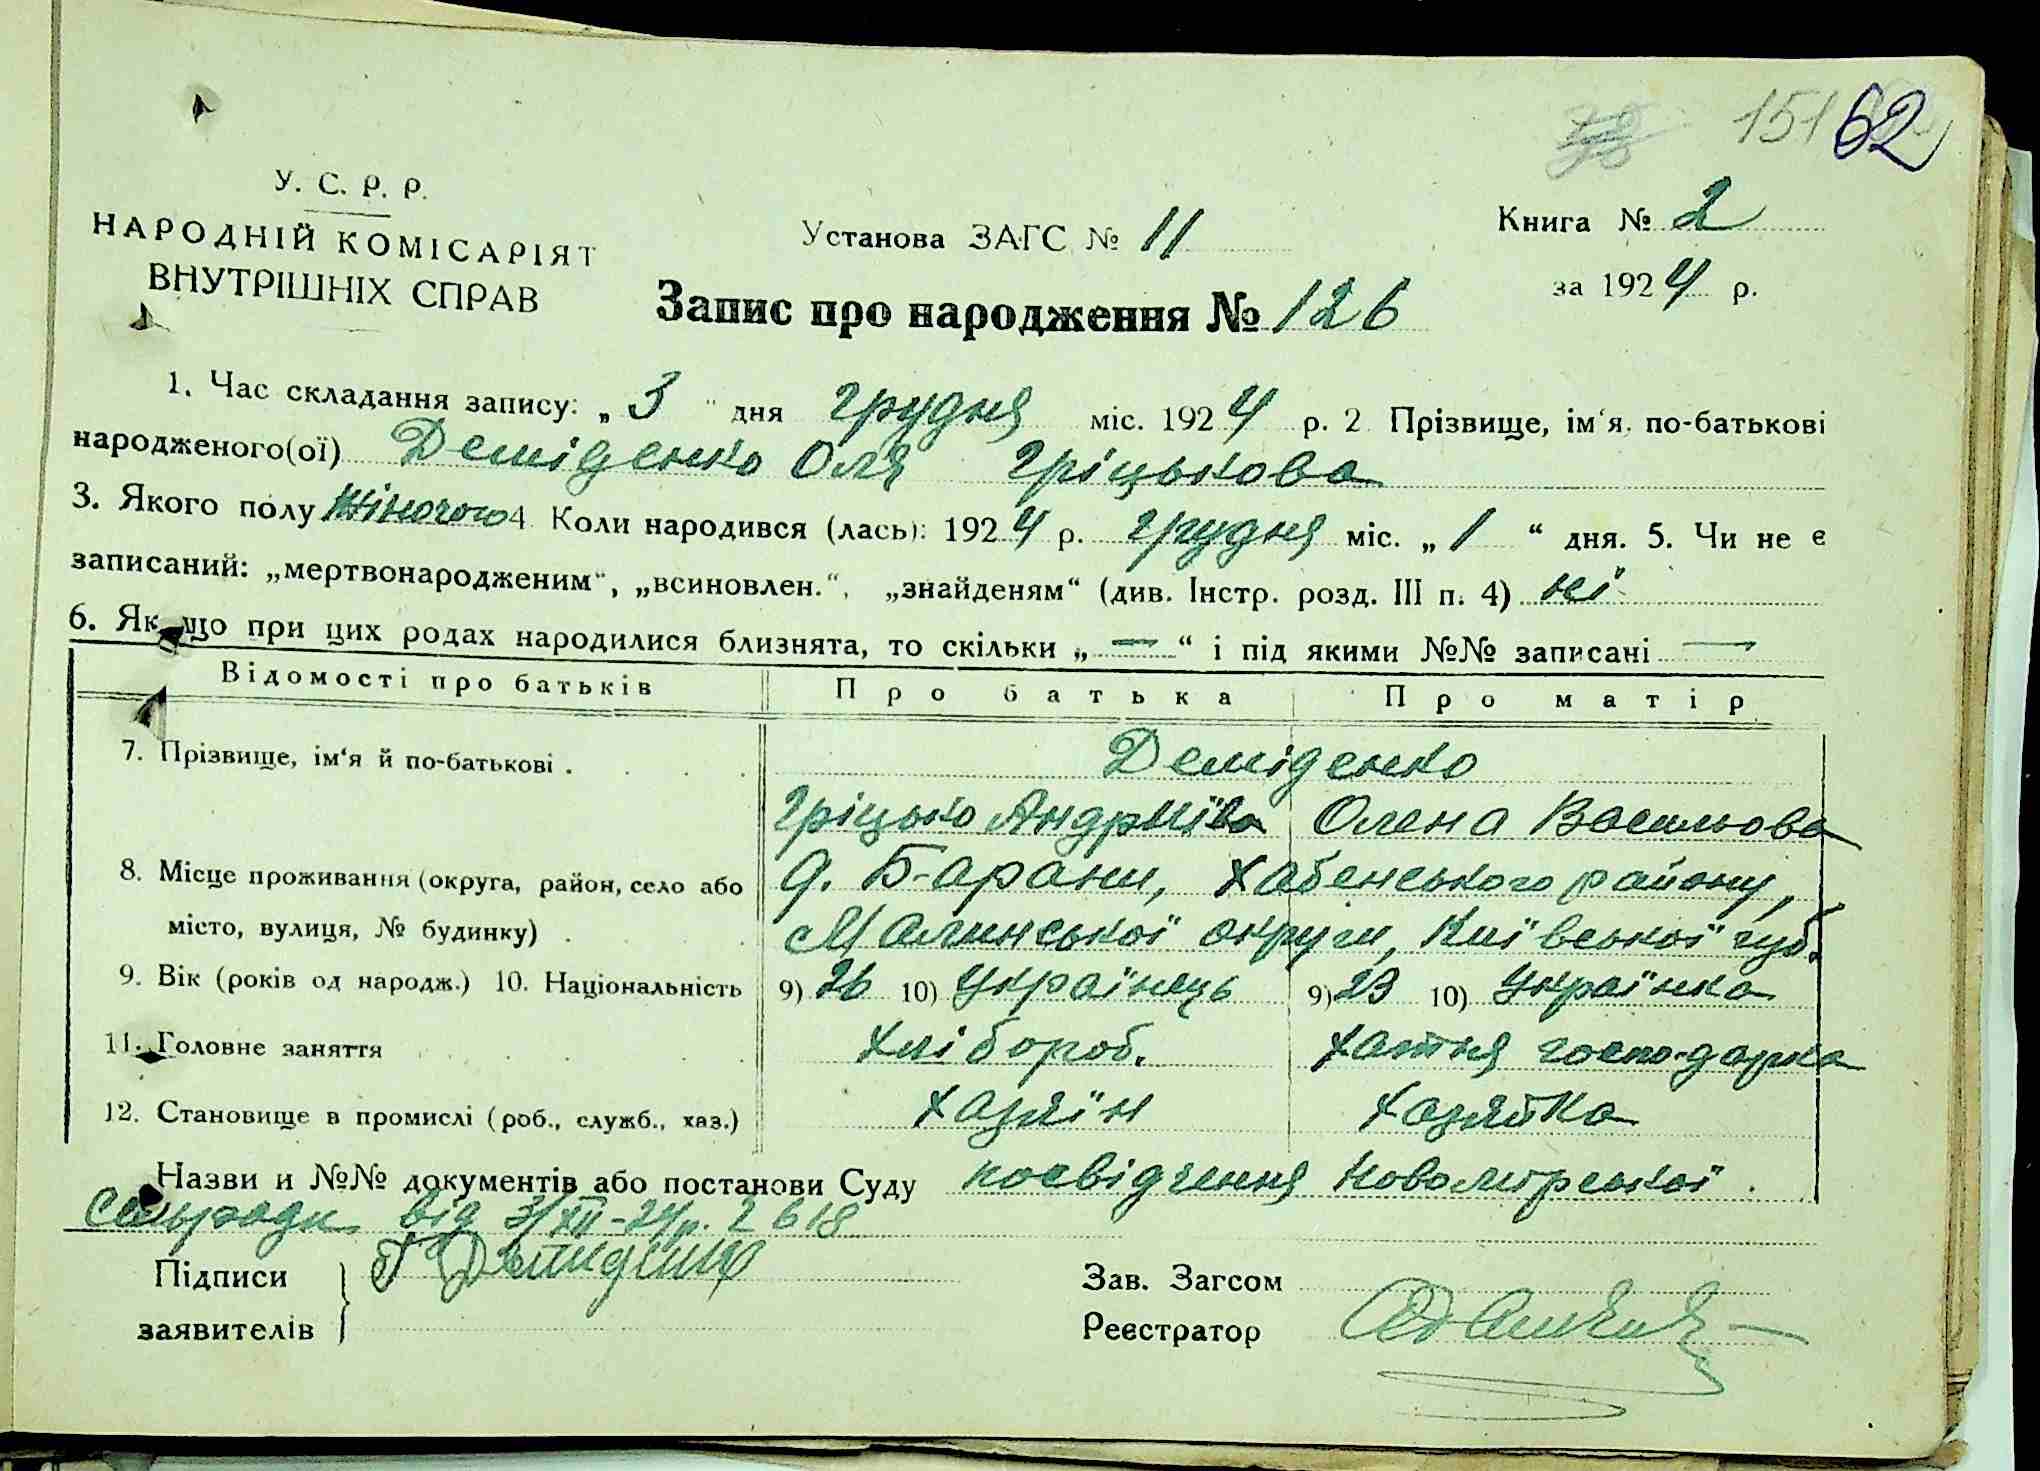 151 62
У. С. Р. Р.
НАРОДНІЙ КОМІСАРІЯТ
ВНУТРІШНІХ СПРАВ
Установа ЗАГС № 11
Книга № 2
за 1924 р.
Запис про народження № 126
1. Час складання запису: „ 3 " дня грудня міс. 1924 р. 2 Прізвище, ім'я, по-батькові
народженого(ої) Деміденко Оля Гріцькова
3. Якого полу Жіночого 4 Коли народився (лась): 1924 р. грудня міс. „ 1 “ дня. 5. Чи не є
записаний: „мертвонародженим“, „всиновлен.“, „знайденям“ (див. Інстр. розд. III п. 4) ні
6. Як що при цих родах народилися близнята, то скільки „ — “ і під якими №№ записані —
Відомості про батьків Про батька Про матір
7. Прізвище, ім'я й по-батькові . Деміденко
Гріцько Андріїва Олена Васильова
8. Місце проживання (округа, район, село або д. Барани, Хабенського району,
місто, вулиця, № будинку) . Малинської округи, Київської губ.
9. Вік (років од народж.) 10. Національність 9) 26 10) Українець 9) 23 10) Українка
11. Головне заняття хлібороб. хатня госпо-дарка
12. Становище в промислі (роб., служб., хаз.) хазяїн хазяйка
Назви и №№ документів або постанови Суду посвідчення Новомирської
Сільради від 3/XII-24р. 2618
Підписи Г Демиденко
заявителів
Зав. Загсом
Реєстратор